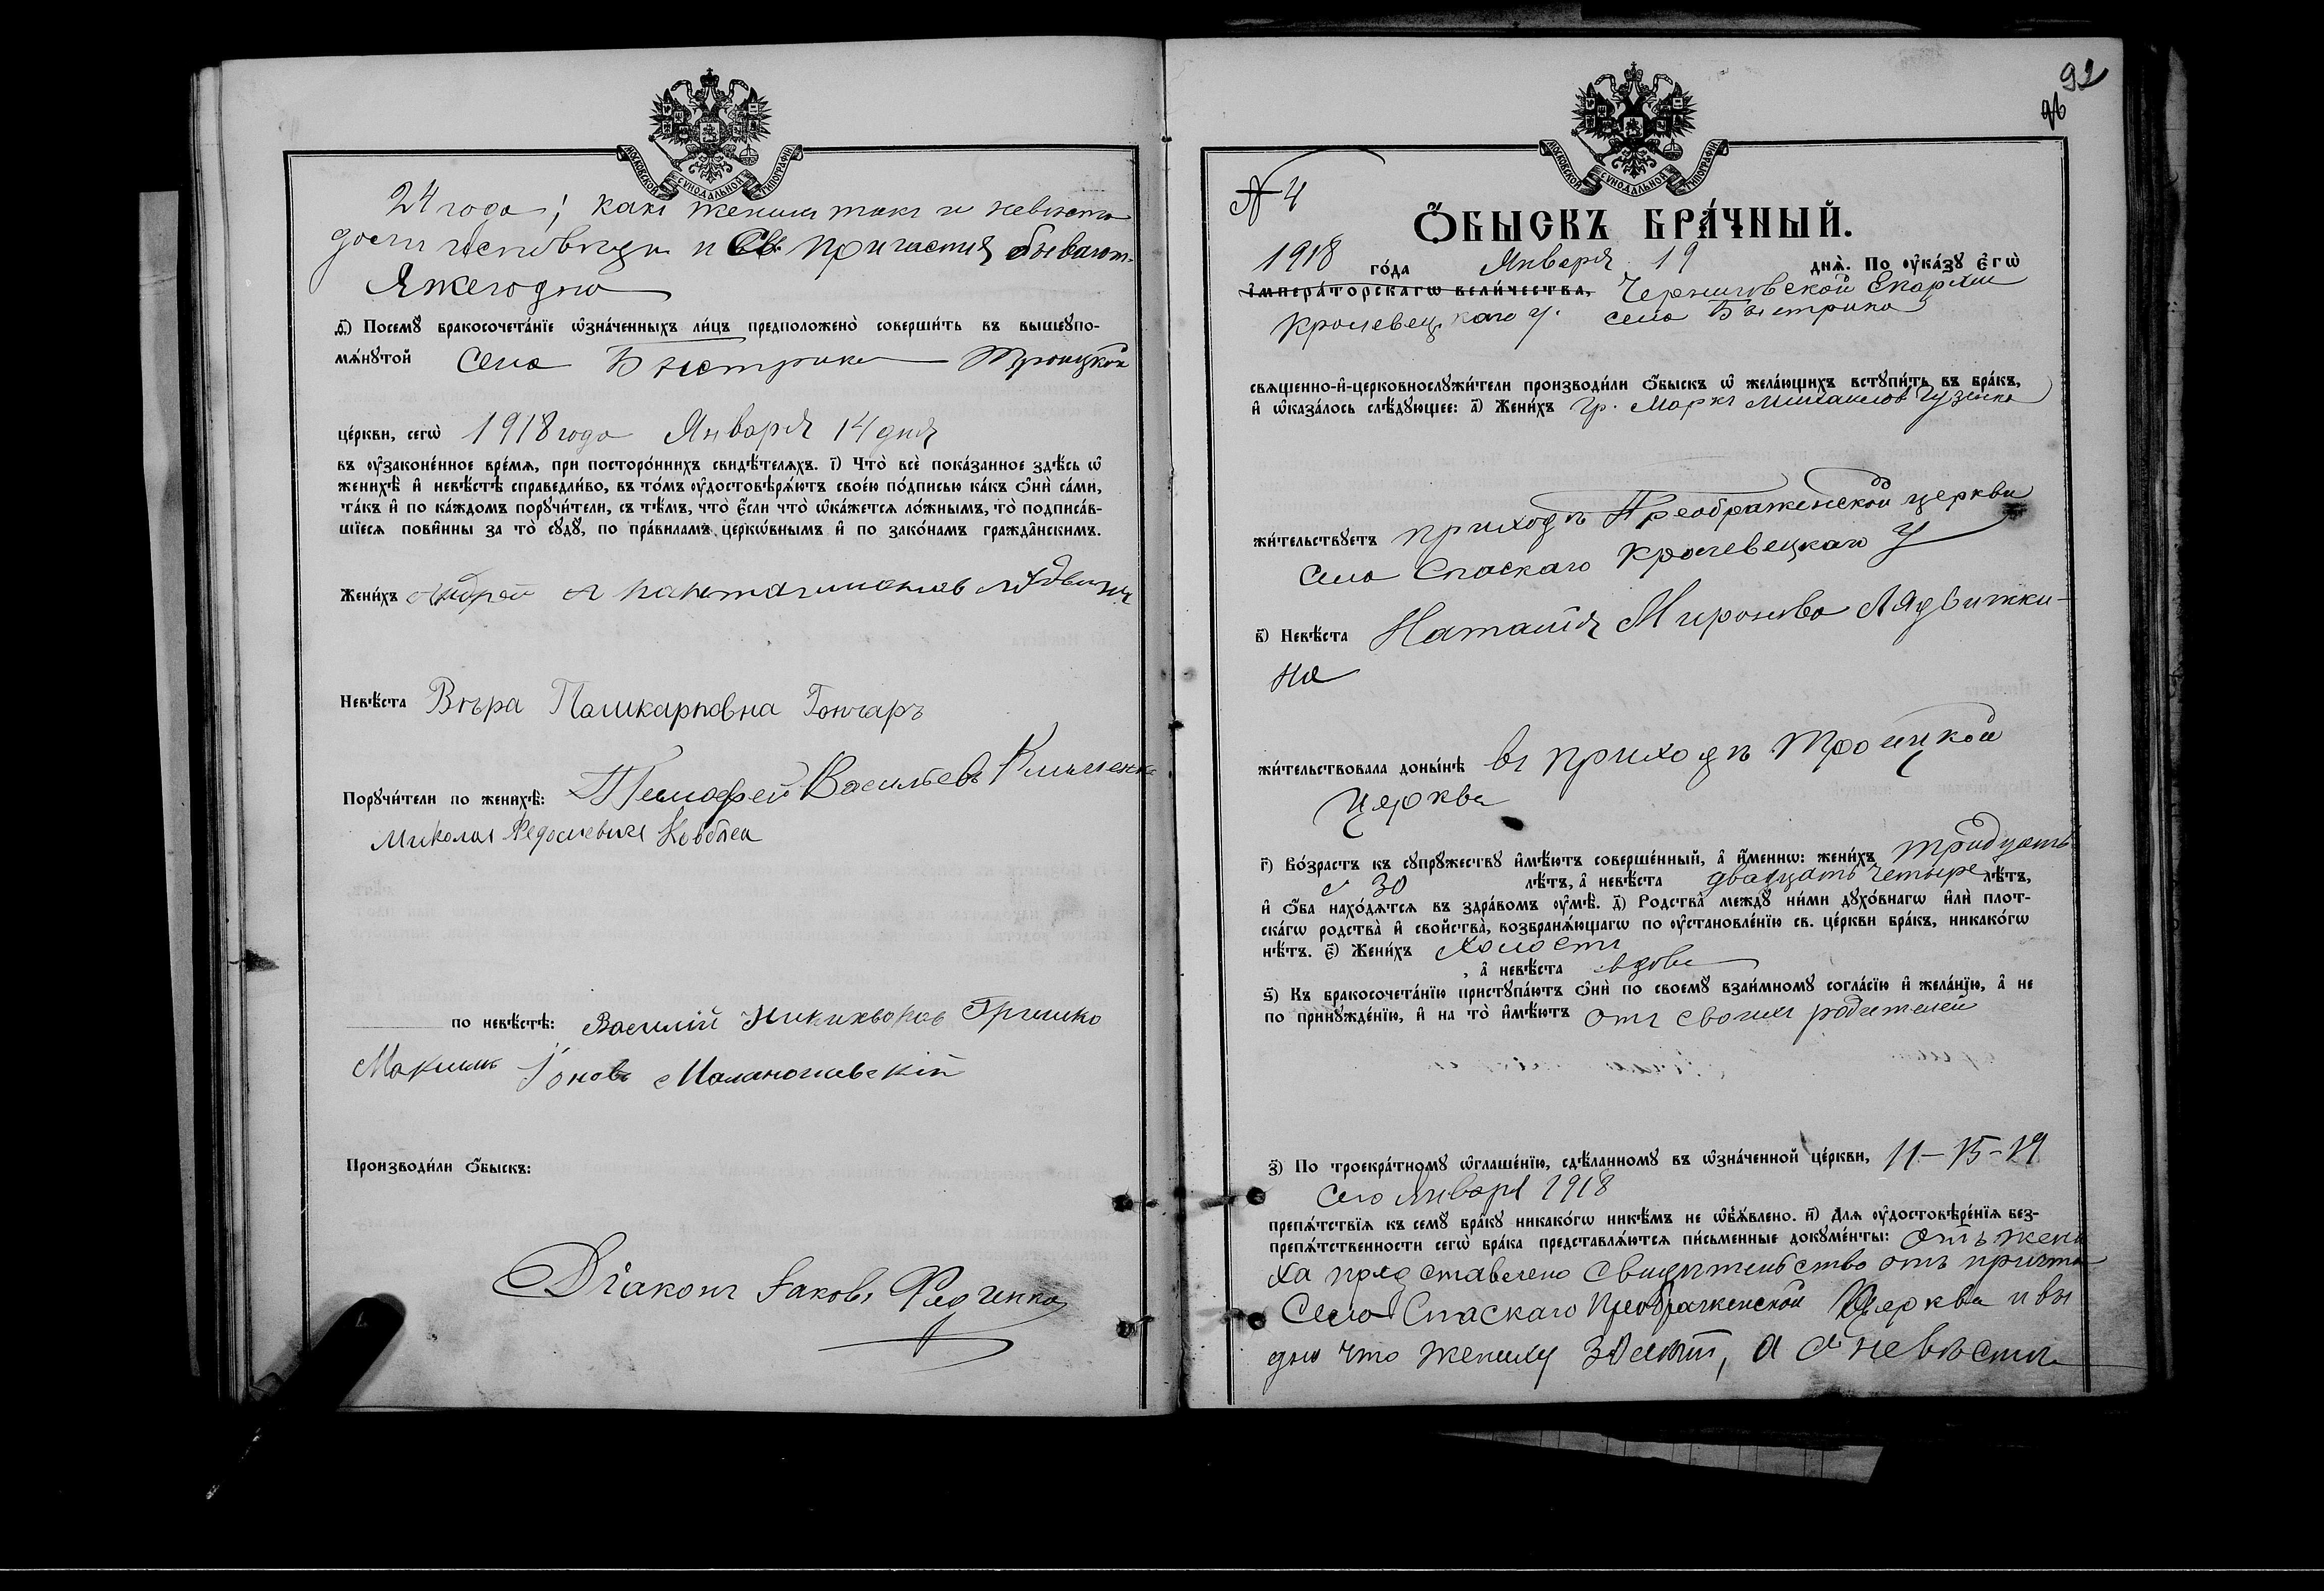 МОСКОВСКОЙ СѴНОДАЛЬНОЙ ТИПОГРАФІИ
24 года; какъ женихъ такъ и невѣста
исповѣди и Св. причастія бываютъ
Яжегодно
ѳ҃) Посемꙋ бракосочета́нїе ѡ҆зна́ченныхъ ли́цъ предположено̀ соверши́ть въ вышеꙋпо-
мѧ́нꙋтой Села Быстрика Троицкой
це́ркви, сегѡ̀ 1918 года Января 14 дня
въ ᲂу҆законе́нное вре́мѧ, при посторо́ннихъ свидѣ́телѧхъ. і҃) Что̀ всѐ пока́занное здѣ́сь ѡ҆
женихѣ̀ и҆ невѣ́стѣ справедли́во, въ то́мъ ᲂу҆достовѣрѧ́ютъ свое́ю по́дписью ка́къ ѻ҆нѝ са́ми,
та́къ и҆ по ка́ждомъ порꙋчи́тели, съ тѣ́мъ, что̀ є҆́сли что̀ ѡ҆ка́жетсѧ ло́жнымъ, то̀ подписа́в-
шїесѧ пови́нны за то̀ сꙋдꙋ̀, по пра́виламъ церкѡ́внымъ и҆ по зако́намъ гражда́нскимъ.
Жени́хъ Андрей
Невѣ́ста Вѣра Пашкарповна Гончаръ
Порꙋчи́тели по женихѣ̀: Тимофей Васильевъ
Миколая
по невѣ́стѣ: Василій Гришко
Максимъ Іоновъ
Производи́ли ѻ҆́быскъ:
Діаконъ Іаковъ Федченко
92
МОСКОВСКОЙ СѴНОДАЛЬНОЙ ТИПОГРАФІИ
№ 4
Ѻ҆́БЫСКЪ БРА́ЧНЫЙ.
1918 го́да Января 19 днѧ̀. По ᲂу҆ка́зꙋ є҆гѡ̀
і҆мпера́торскагѡ вели́чества, Черниговской Епархіи
Кролевецкаго у. села Быстрика
свѧщенно-и҆-церковнослꙋжи́тели производи́ли ѻ҆́быскъ ѡ҆ жела́ющихъ встꙋпи́ть въ бра́къ,
и҆ ѡ҆каза́лось слѣ́дꙋющее: а҃) Жени́хъ гр. Маркъ Михаиловъ Гузенко
жи́тельствꙋетъ приходѣ Преображенской церкви
села Спаскаго Кролевецкаго у
в҃) Невѣ́ста Наталія Миронова Лядвижки-
на
жи́тельствовала доны́нѣ въ приходѣ Троицкой
Церкви
г҃) Во́зрастъ къ сꙋпрꙋ́жествꙋ и҆мѣ́ютъ соверше́нный, а҆ и҆́меннѡ: жени́хъ тридцать
30 лѣ́тъ, а҆ невѣ́ста двадцать четыре лѣ́тъ,
и҆ ѻ҆́ба нахо́дѧтсѧ въ здра́вомъ ᲂу҆мѣ̀. д҃) Родства̀ междꙋ̀ ни́ми дꙋхо́внагѡ и҆лѝ плот-
ска́гѡ родства̀ и҆ свойства̀, возбранѧ́ющагѡ по ᲂу҆становле́нїю св. це́ркви бра́къ, никако́гѡ
нѣ́тъ. є҃) Жени́хъ холостъ
, а҆ невѣ́ста вдова
ѕ҃) Къ бракосочета́нїю пристꙋпа́ютъ ѻ҆нѝ по своемꙋ̀ взаи́мномꙋ согла́сїю и҆ жела́нїю, а҆ не
по принꙋжде́нїю, и҆ на то̀ и҆мѣ́ютъ отъ своихъ родителей
з҃) По троекра́тномꙋ ѡ҆глаше́нїю, сдѣ́ланномꙋ въ ѡ҆зна́ченной це́ркви, 11-15-19
сего Января 1918
препѧ́тствїѧ къ семꙋ̀ бра́кꙋ никако́гѡ никѣ́мъ не ѡ҆б̾ѧ́влено. и҃) Длѧ ᲂу҆достовѣре́нїѧ без-
препѧ́тственности сегѡ̀ бра́ка представлѧ́ютсѧ пи́сьменные докꙋме́нты: Отъ жени
ха представлено свидѣтельство отъ причта
Села Спаскаго Преображенской Церкви и ви
дно что жениху 30 лѣтъ, а невѣстѣ